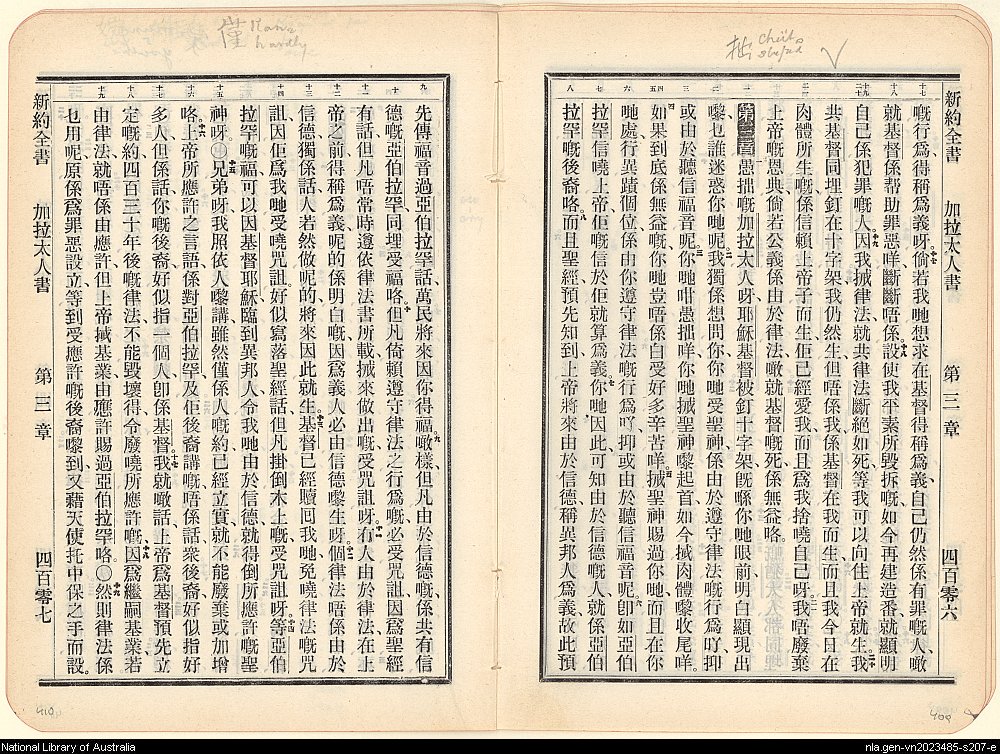 僅 Kan2 hardly
拙 Chüt3 stupid
新約全書 加拉太人書 第三章 四百零六
嘅行爲得稱爲義呀倘若我哋想求在基督得稱爲義自己仍然係有罪嘅人噉
就基督係帮助罪惡咩斷斷唔係設使我平素所毀拆嘅如今再建造番就顯明
自己係犯罪嘅人因我搣律法就共律法斷絕如死等我可以向住上帝就生我
共基督同埋釘在十字架我仍然生但唔係我係基督在我而生而且我今日在
肉體所生嘅係信賴上帝子而生佢已經愛我而且爲我捨嘵自己呀我唔廢棄
上帝嘅恩典倘若公義係由於律法噉就基督嘅死係無益咯
第三章愚拙嘅加拉太人呀耶穌基督被釘十字架旣喺你哋眼前明白顯現出
嚟乜誰迷惑你哋呢我獨係想問你你哋受聖神係由於遵守律法嘅行爲吖抑
或由於聽信福音呢你哋咁愚拙咩你哋搣聖神嚟起首如今搣肉體嚟收尾咩
如果到底係無益嘅你哋豈唔係白受好多辛苦咩搣聖神賜過你哋而且在你
哋處行異蹟個位係由你遵守律法嘅行爲吖抑或由於聽信福音呢卽如亞伯
拉罕信嘵上帝佢嘅信於佢就算爲義你哋因此可知由於信德嘅人就係亞伯
拉罕嘅後裔咯而且聖經預先知到上帝將來由於信德稱異邦人爲義故此預
先傳福音過亞伯拉罕話萬民將來因你得福噉樣但凡由於信德嘅係共有信
德嘅亞伯拉罕同埋受福咯但凡倚賴遵守律法之行爲嘅必受咒詛因爲聖經
有話但凡唔常時遵依律法書所載搣來做出嘅受咒詛呀有人由於律法在上
帝之前得稱爲義呢的係明白嘅因爲義人必由信德嚟生呀個律法唔係由於
信德獨係話人若然做呢的將來因此就生基督已經贖囘我哋免嘵律法嘅咒
詛因佢爲我哋受嘵咒詛好似寫落聖經話但凡掛倒木上嘅受咒詛呀等亞伯
拉罕嘅福可以因基督耶穌臨到異邦人令我哋由於信德就得倒所應許嘅聖
神呀〇兄弟呀我照依人嚟講雖然僅係人嘅約已經立實就不能廢棄或加增
咯上帝所應許之言語係對亞伯拉罕及佢後裔講嘅唔係話衆後裔好似指好
多人但係話你嘅後裔好似指一個人卽係基督我就噉話上帝爲基督預先立
定嘅約四百三十年後嘅律法不能毀壞得令廢嘵所應許嘅因爲繼嗣基業若
由律法就唔係由應許但上帝搣基業由應許賜過亞伯拉罕咯〇然則律法係
乜用呢原係爲罪惡設立等到受應許嘅後裔嚟到又藉天使托中保之手而設
新約全書 加拉太人書 第三章 四百零七
410
409
National Library of Australia
nla.gen-vn2023485-s207-e